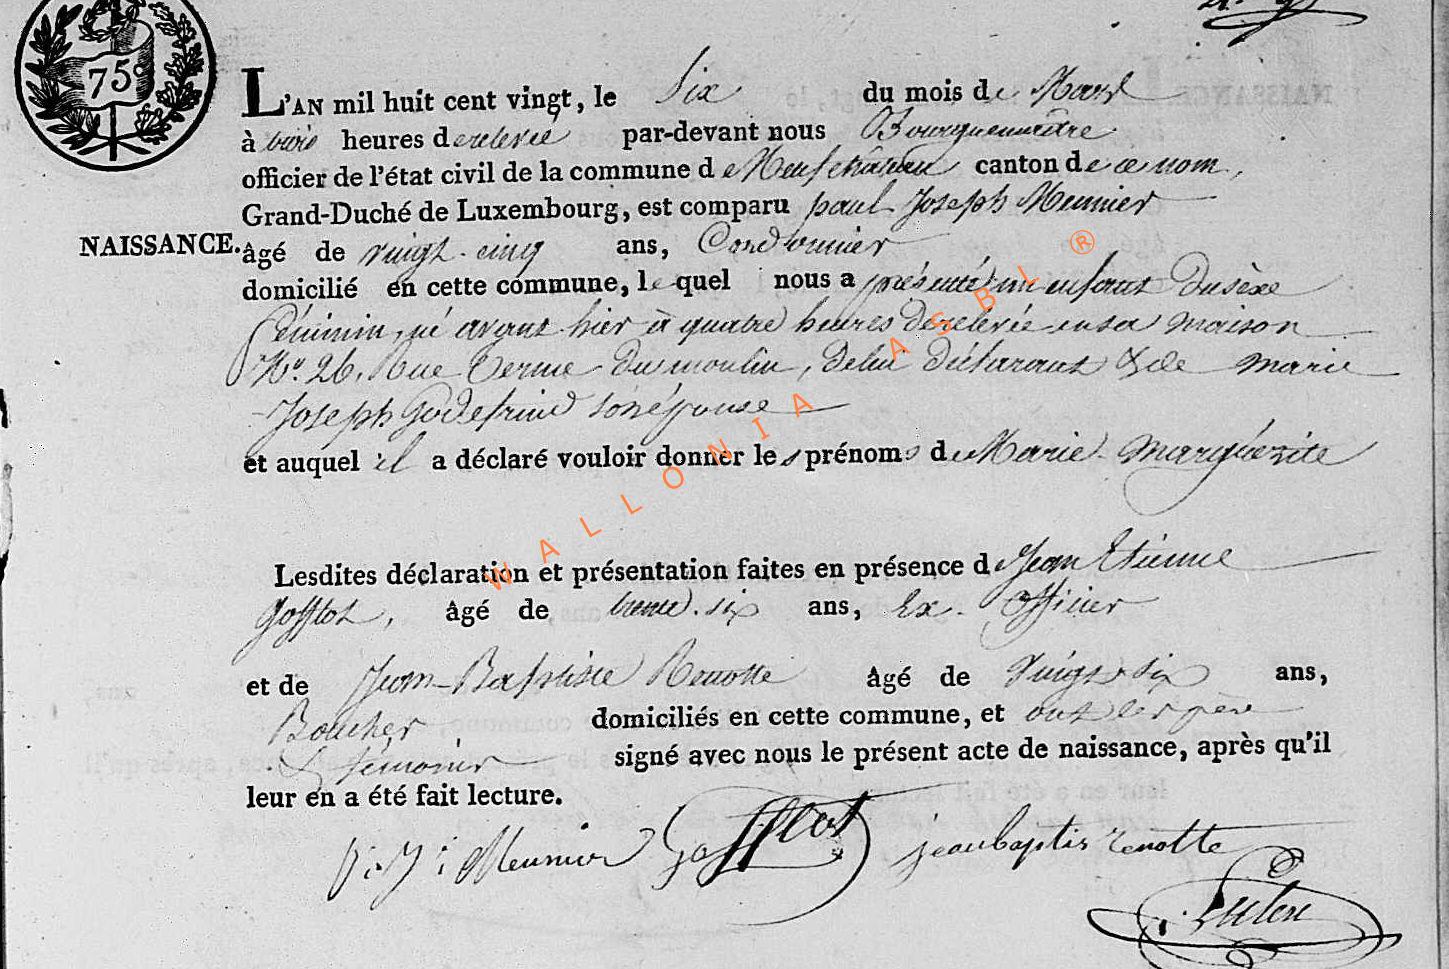 75
L'AN mil huit cent vingt, le Six du mois de Mars
à trois heures de relevée par-devant nous Bourguemaitre
officier de l'état civil de la commune de Neufchateau canton de ce nom,
Grand-Duché de Luxembourg, est comparu paul Joseph Meunier
NAISSANCE. âgé de vingt-cinq ans, Cordonnier
domicilié en cette commune, lequel nous a présenté un enfant du sèxe
féminin, né avant hier à quatre heures de relevée en sa maison
No. 26, Rue Terme du moulin, de lui déclarant & de marie
Joseph Godefrind son épouse
et auquel il a déclaré vouloir donner les prénoms de Marie Marguérite
Lesdites déclaration et présentation faites en présence de Jean Etienne
Gofflot, âgé de trente-six ans, Ex-Officier
et de Jean-Baptiste Renotte âgé de vingt-six ans,
Boucher domiciliés en cette commune, et ont les père
& témoins signé avec nous le présent acte de naissance, après qu'il
leur en a été fait lecture.
P: J: Meunier Gofflot jean baptis renotte
WALLONIA ASBL ®